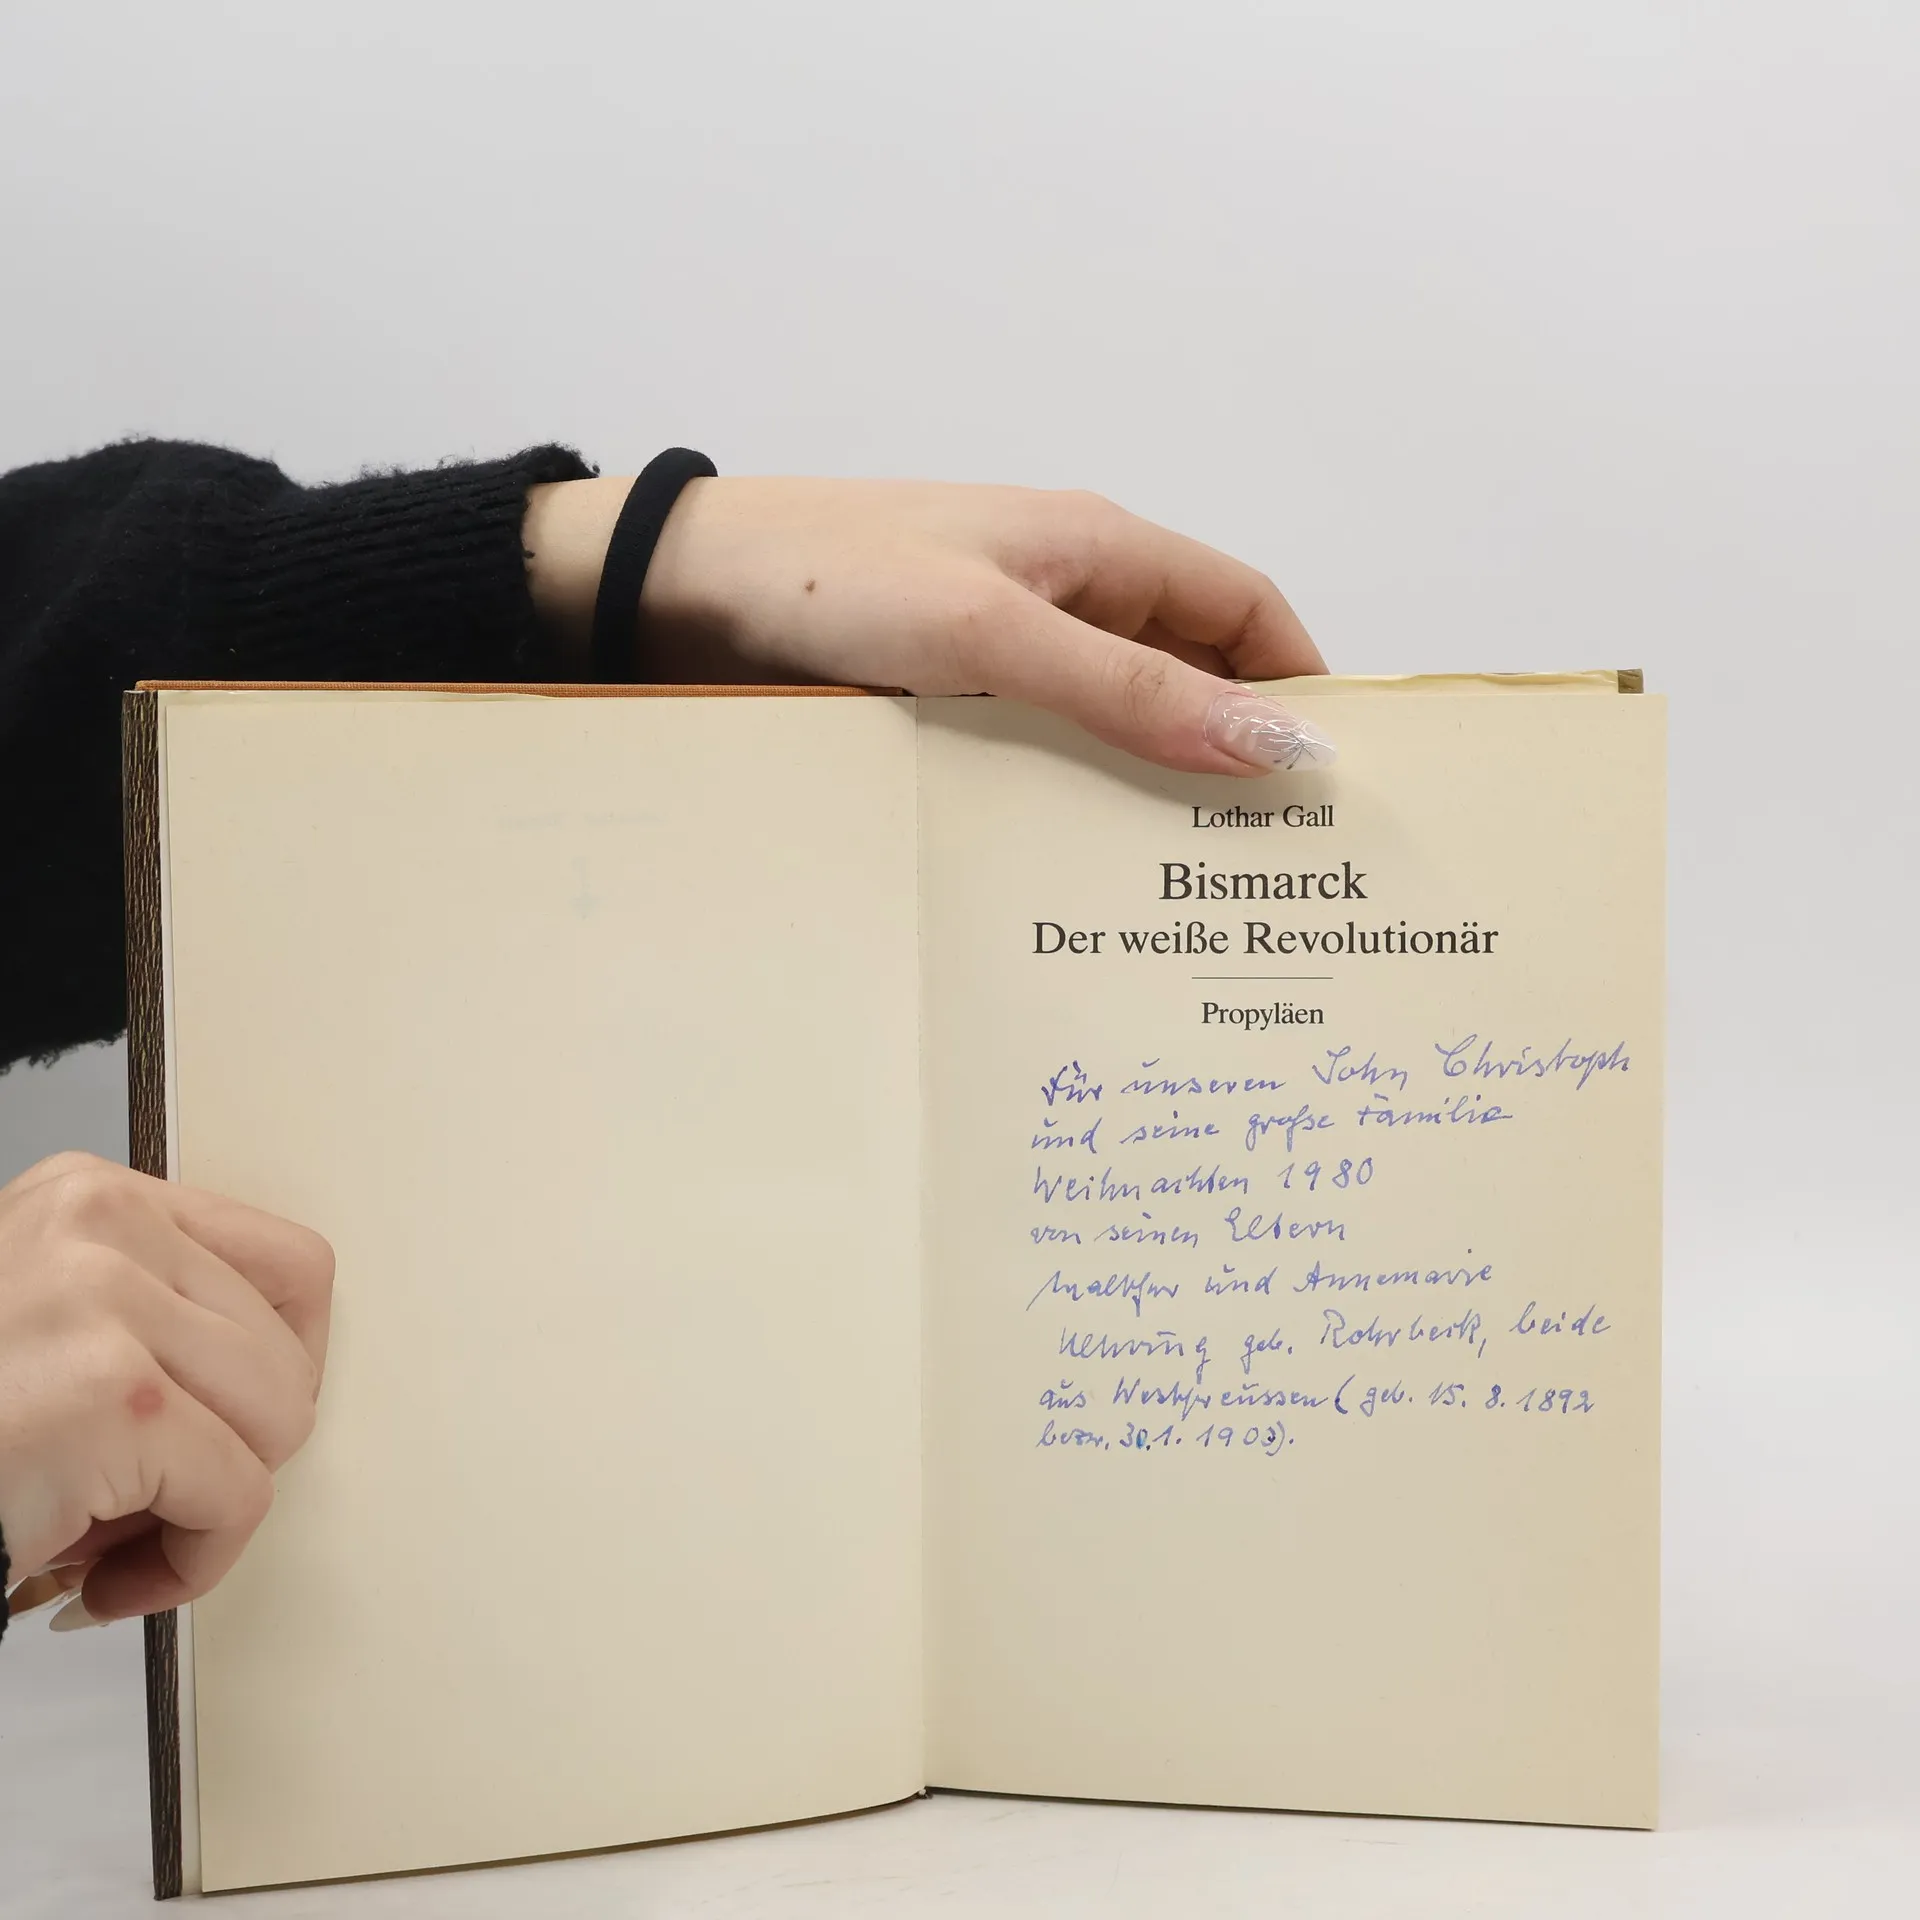 Lothar Gall
Bismarck
Der weiße Revolutionär
Propyläen
Für unseren John Christoph
und seine große Familie
Weihnachten 1980
von seinen Eltern
Walther und Annemarie
Nehring geb. Rohrbeck, beide
aus Westpreussen (geb. 15. 8. 1892
bezw. 30.1. 1903).